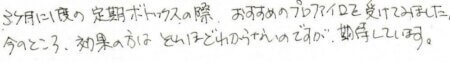 3ヶ月に1度の定期ボトックスの際、おすすめのプロファイロを受けてみました。
今のところ、効果の方はそれほどわからないのですが、期待しています。